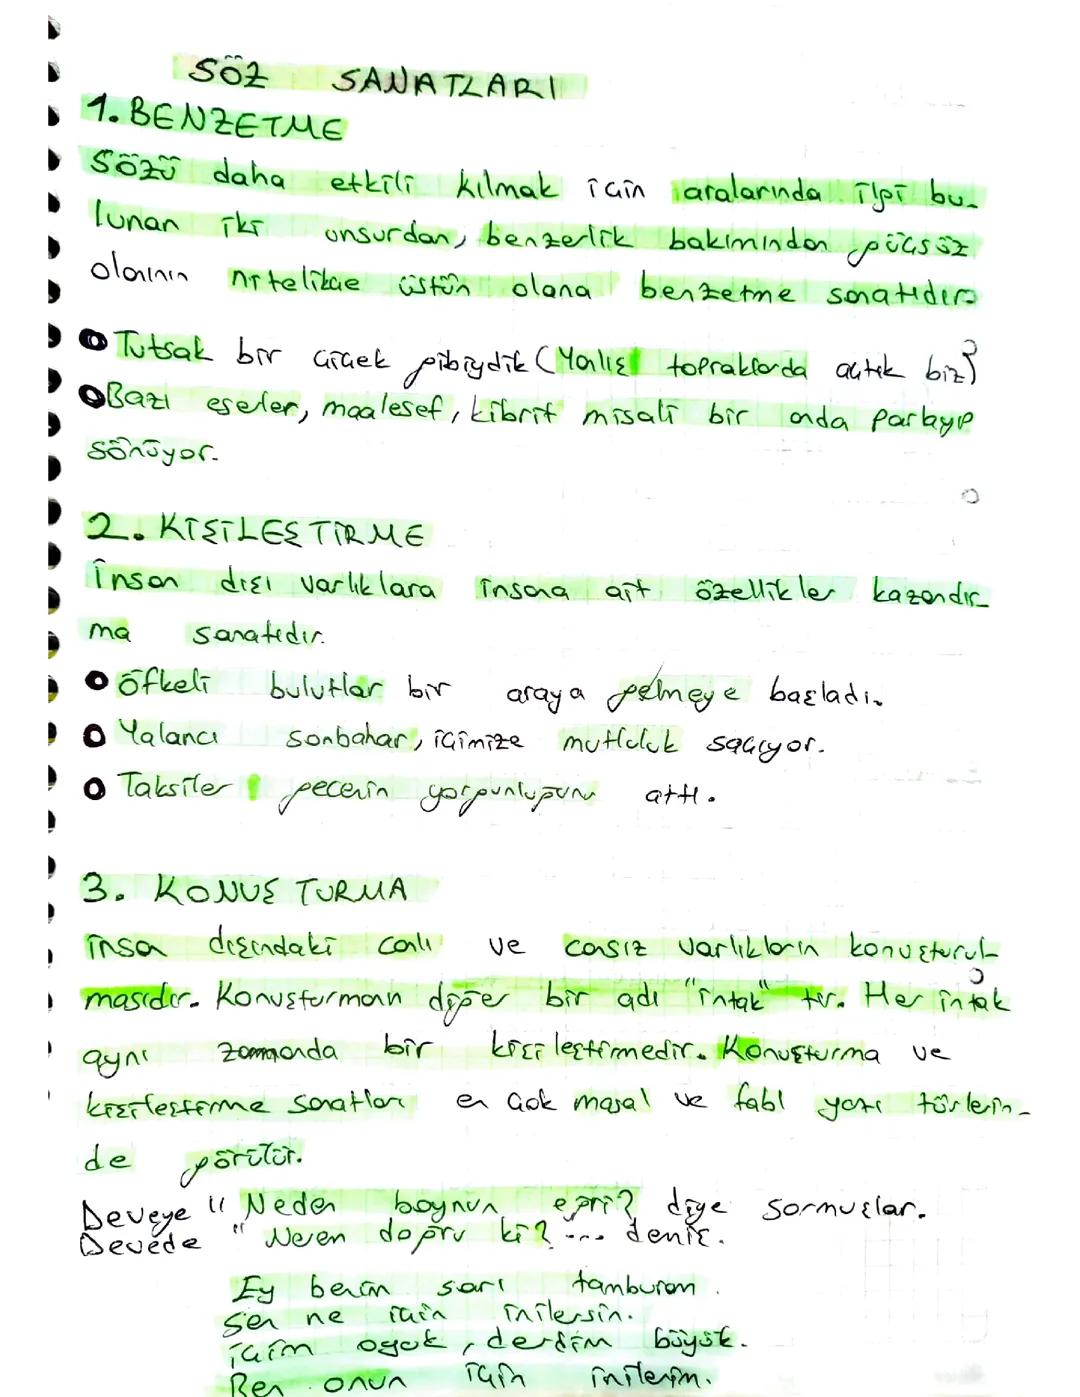 SÖZ SANATLARI
1. BENZETME
Sözü daha etkili kılmak için aralarında ilgi bu-
lunan iki unsurdan, benzerlik bakımından güçsüz
olanının nitelikçe üstün olana benzetme sanatıdır
Tutsak bir çiçek gibiydik (Yanlış topraklarda açtık biz)
Bazı eserler, maalesef, kibrit misali bir anda parlayıp
sönüyor.
2. KİŞİLEŞTİRME
İnsan dışı varlıklara insana ait özellikler kazandır-
ma sanatıdır.
Öfkeli bulutlar bir araya gelmeye başladı.
Yalancı sonbahar, içimize mutluluk saçıyor.
Taksiler gecenin yorgunluğunu attı.
3. KONUŞTURMA
İnsan dışındaki canlı ve cansız varlıkların konuşturul-
masıdır. Konuşturmanın diğer bir adı "intak" tır. Her intak
aynı zamanda bir kişileştirmedir. Konuşturma ve
kişileştirme sanatları en çok masal ve fabl yazı türlerin-
de görülür.
Deveye "Neden boynun eğri? diye sormuşlar.
Devede "Neren doğru ki? ... demiş.
Ey benim sarı tamburam
Sen ne için inilersin.
İçim oyuk, derdim büyük.
Ben onun için inilerim.